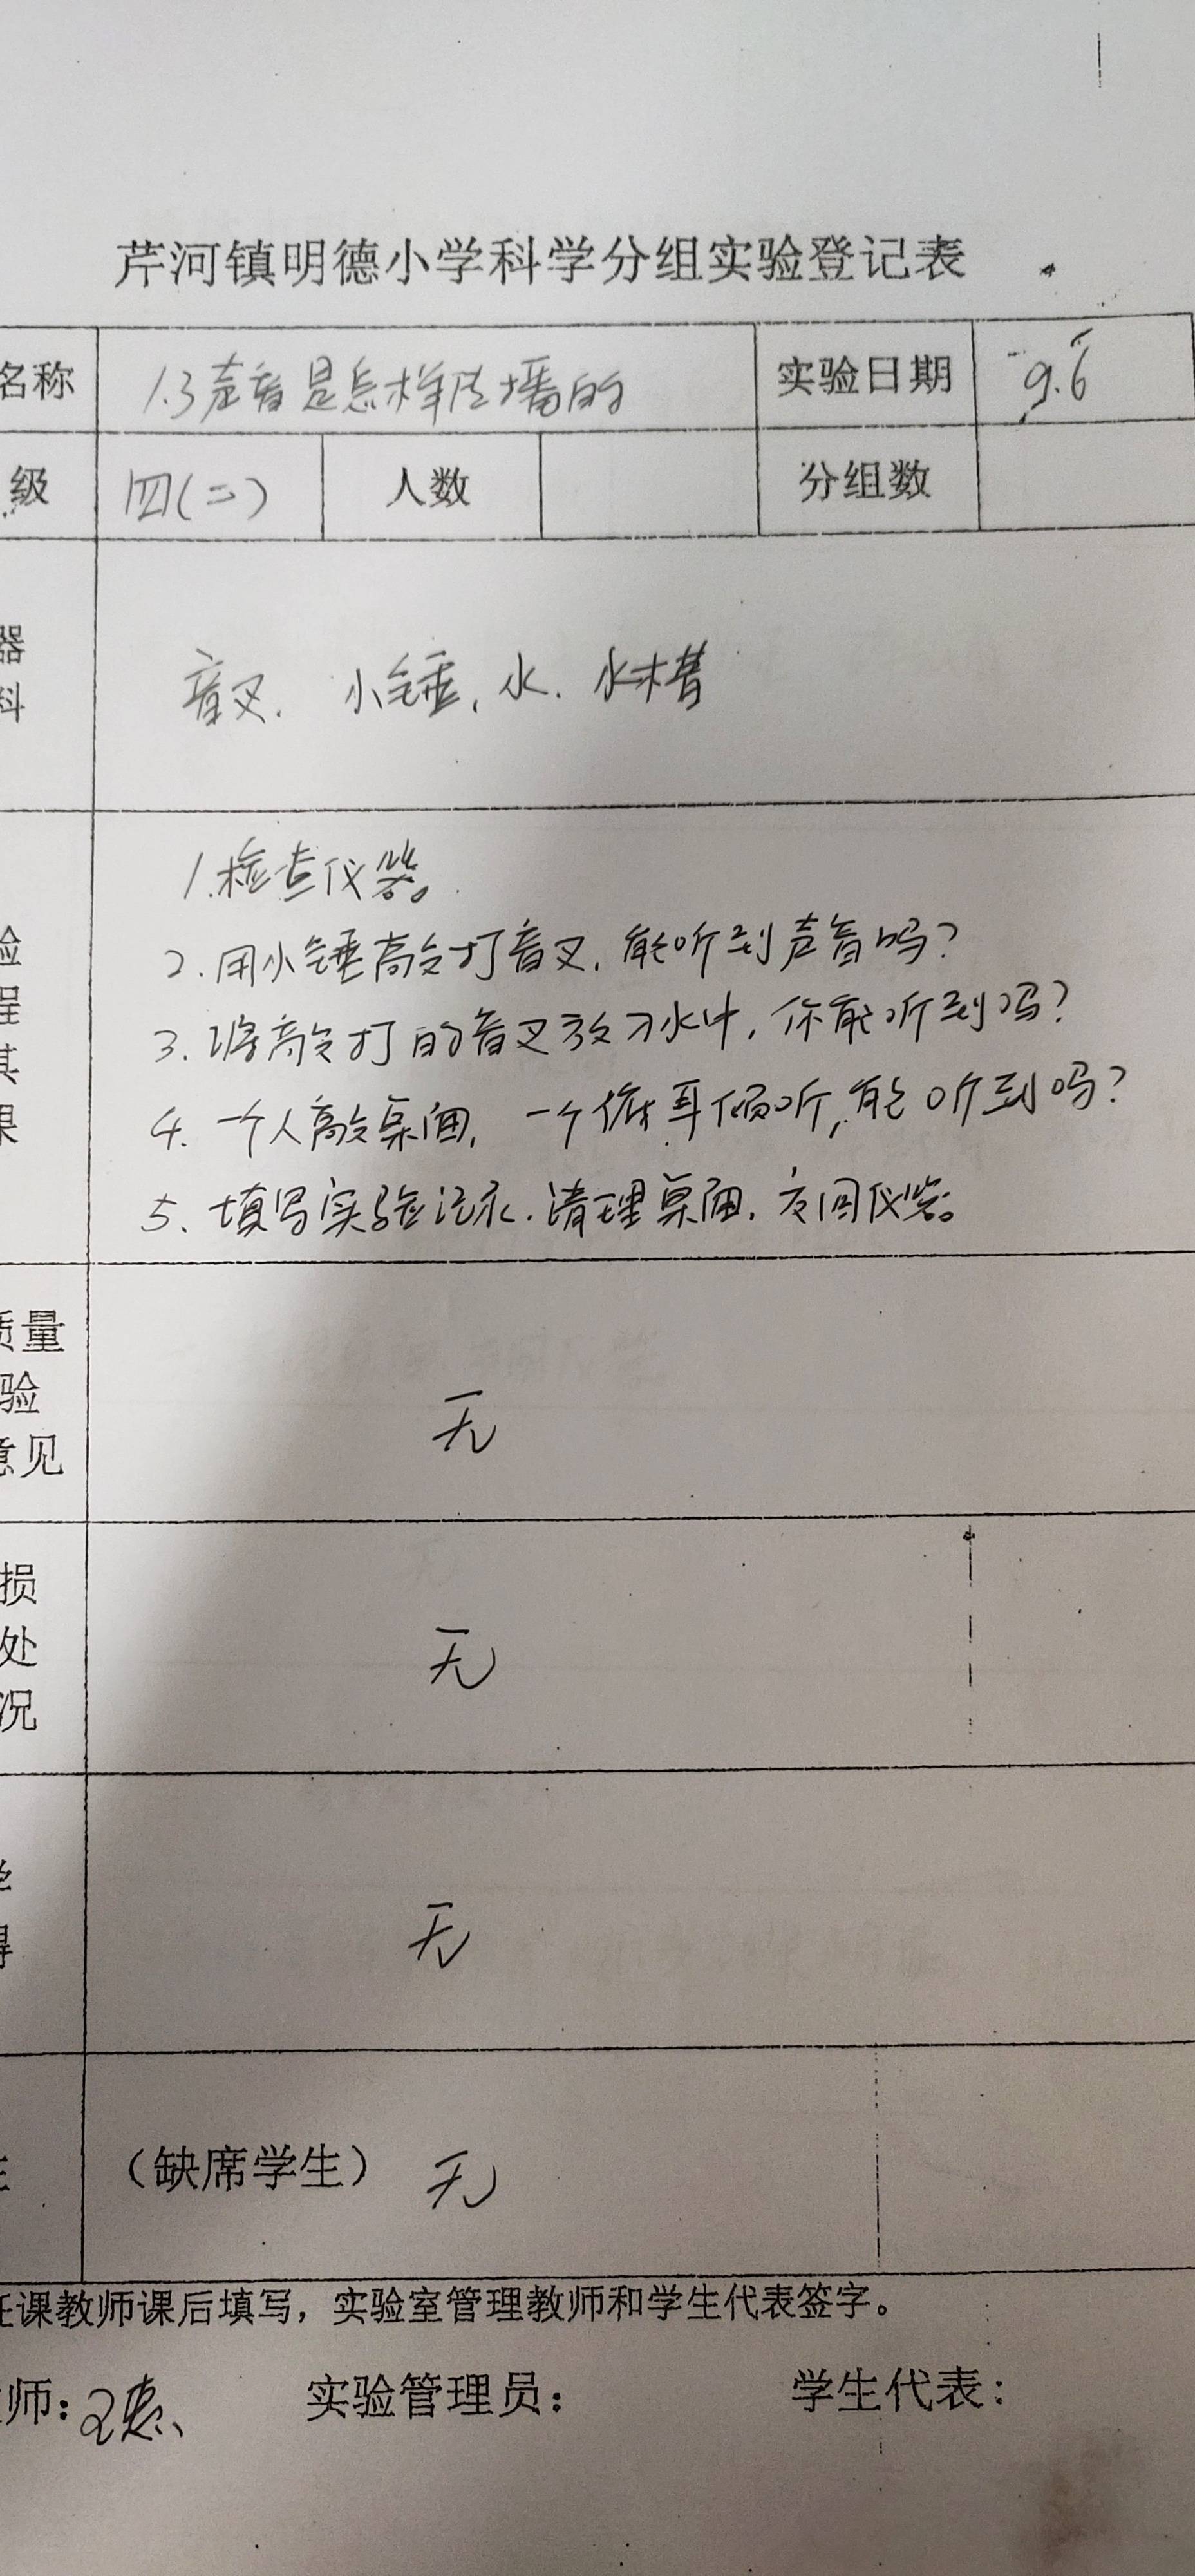 芹河镇明德小学科学分组实验登记表
名称 1.3声音是怎样传播的 实验日期 9.6
级 四(二) 人数 分组数
器
料
音叉. 小锤, 水. 水槽
1.检查仪器。
验 2.用小锤敲打音叉,能听到声音吗?
程 3.将敲打的音叉放水中,你能听到吗?
其
果 4.一个人敲桌面, 一个俯耳倾听,能听到吗?
5、填写实验记录.清理桌面.放回仪器。
质量
验
意见
无
损
处
况
无
学
得
无
(缺席学生) 无
任课教师课后填写,实验室管理教师和学生代表签字。
师: 实验管理员: 学生代表: